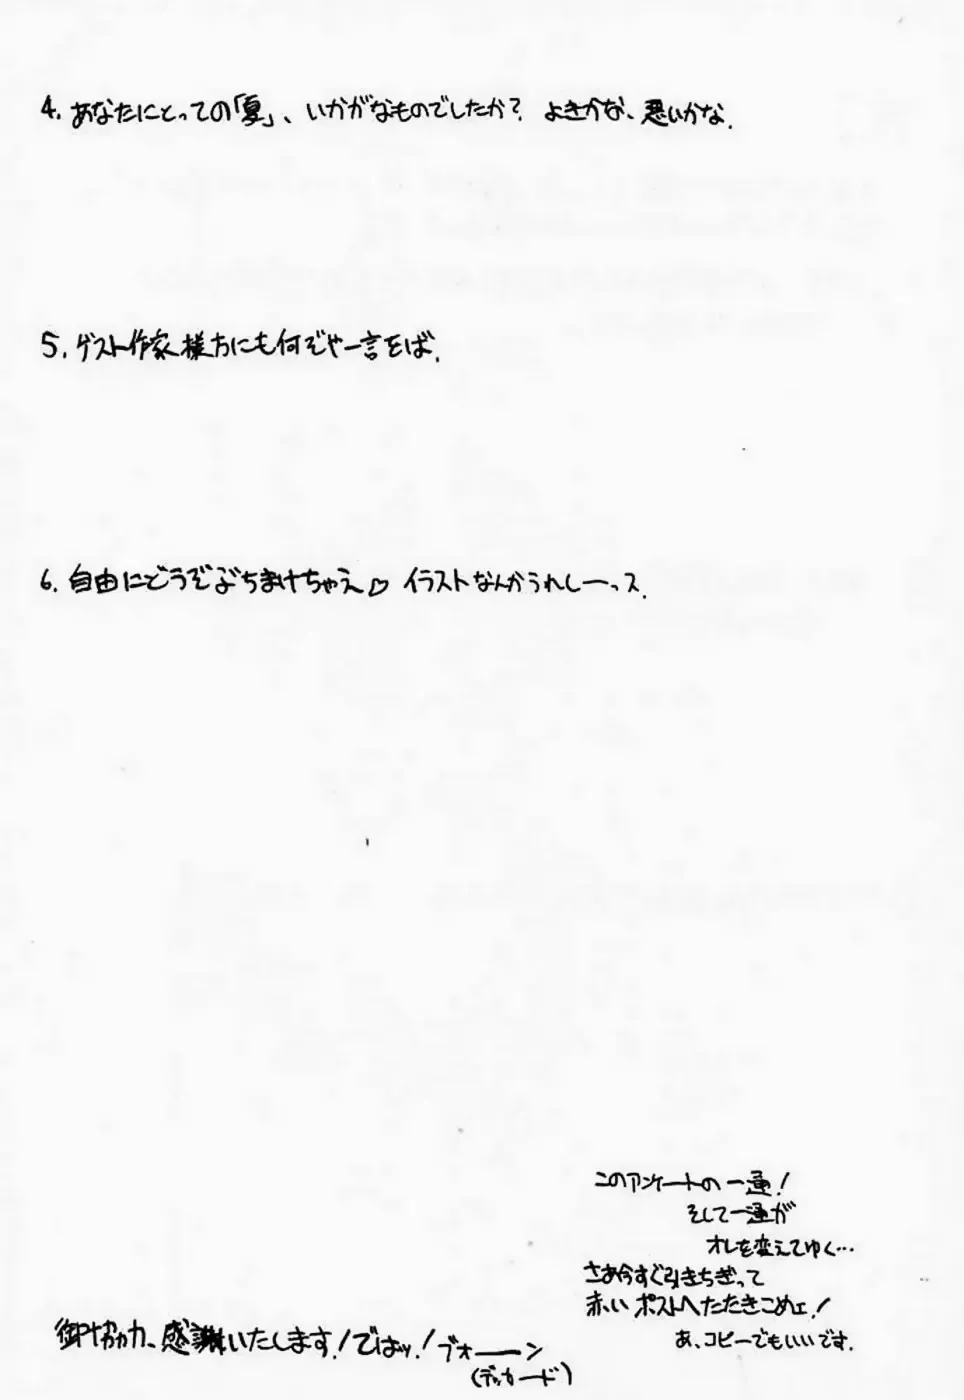 4. あなたにとっての「夏」、いかがなものでしたか？ よきかな、悪いかな.
5. ゲスト作家様方にも何ぞや一言をば.
6. 自由にどうぞぶちまけちゃえ♡ イラストなんかうれしーっス.
このアンケートの一通！
そして一通が
オレを変えてゆく…
さあ今すぐ引きちぎって
赤いポストへたたきこめェ！
あ、コピーでもいいです.
御協力、感謝いたします！ではッ！ブォーーン
(デッカード)